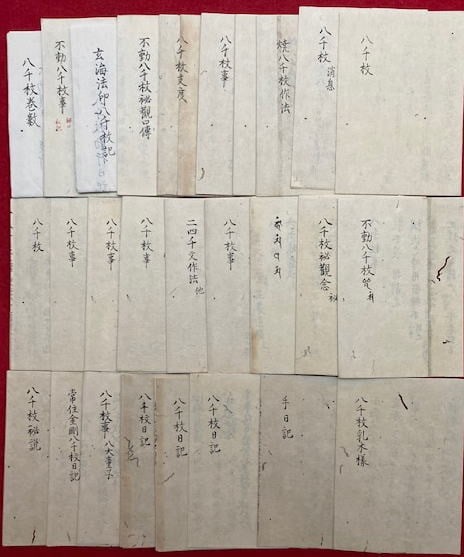 八千枚
八千枚 消息
焼八千枚作法
八千枚事
八千枚支度
不動八千枚祕觀口傳
玄海法印八千枚記
不動八千枚事
八千枚巻數
不動八千枚
八千枚祕觀念 祕
八千枚事
二四千文作法 他
八千枚事
八千枚事
八千枚事
八千枚
八千枚乳木樣
手日記
八千枚日記
八千枚日記
八千枚日記
八千枚事 八大童子
常住金剛八千枚日記
八千枚祕説